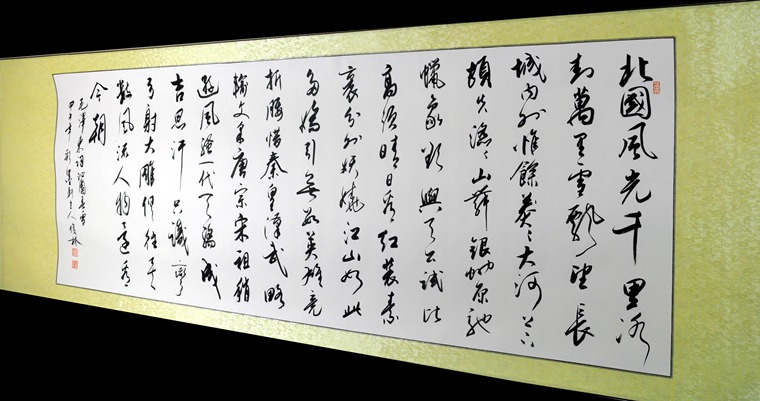 北國風光千里冰
封萬里雪飄望長
城内外惟餘莽〻大河上下
頓失滔〻山舞銀蛇原馳
蠟象欲與天公試比
高須晴日看紅裝素
裹分外妖嬈江山如此
多嬌引無數英雄競
折腰惜秦皇漢武略
輸文采唐宗宋祖稍
遜風騷一代天驕成
吉思汗只識彎
弓射大雕俱往矣
數風流人物還看
今朝
毛澤東詞沁園春雪
甲午年